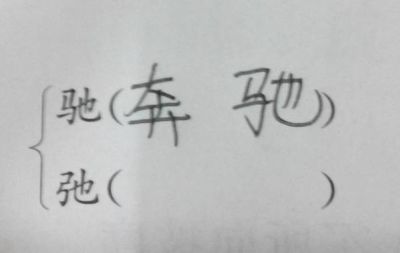 驰(奔 驰)
弛( )